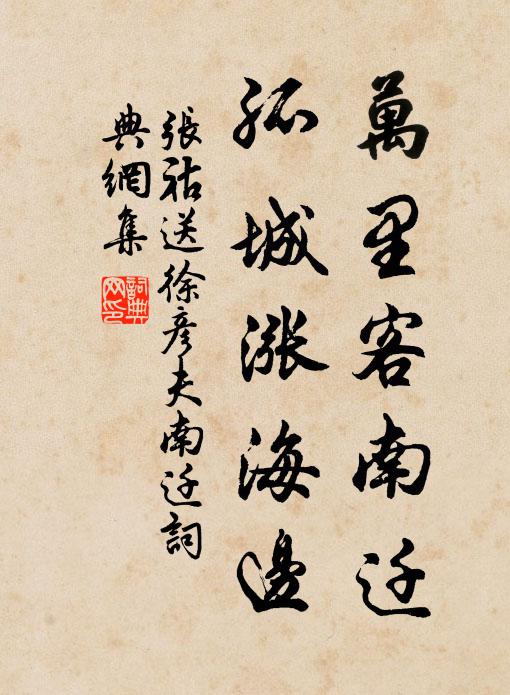 萬里客南迁
孤城漲海邊
張祜送徐彦夫南迁詞
典網集
詞典
网印